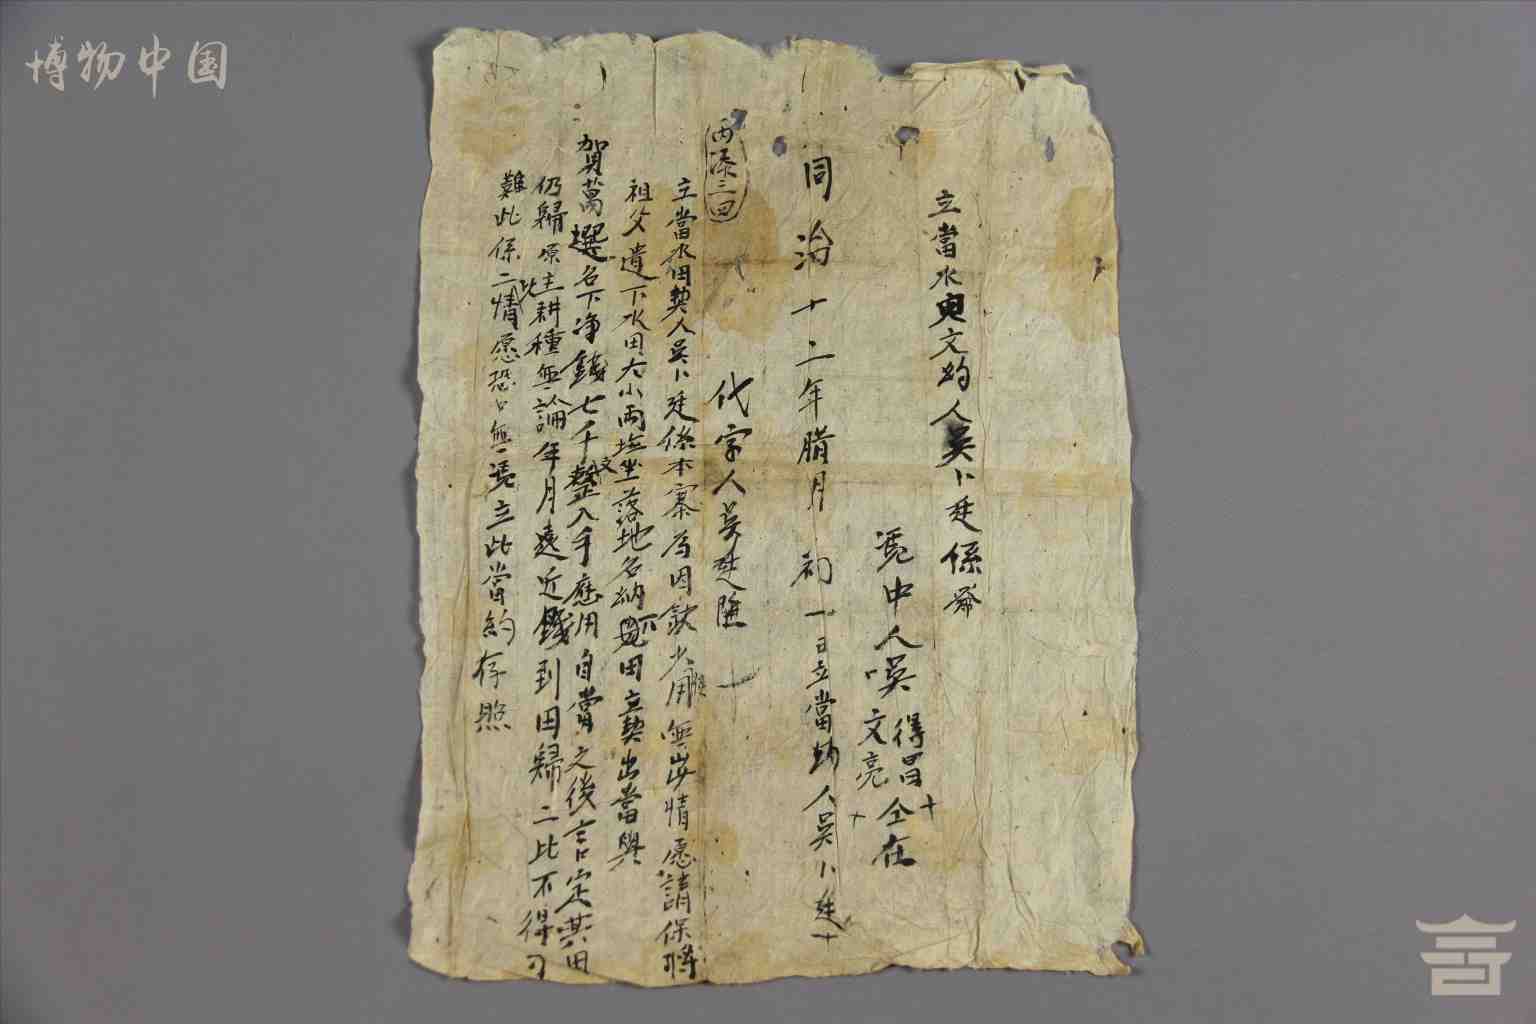 博物中国
立當水田文約人吴卜廷係爺
憑中人吴得昌 文亮 仝在
同治十二年臘月初一日立當約人吴卜廷十
代字人吴廷陞
立當水田契人吴卜廷係本寨為因缺少用無出情愿請保將
祖父遺下水田大小兩坵坐落地名納田立契出當與
賀萬選名下净錢七千文整入手應用自當之後言定其田
仍歸原主耕種無論年月遠近錢到田歸二比不得刁
難此係二比情愿恐口無憑立此當約存照